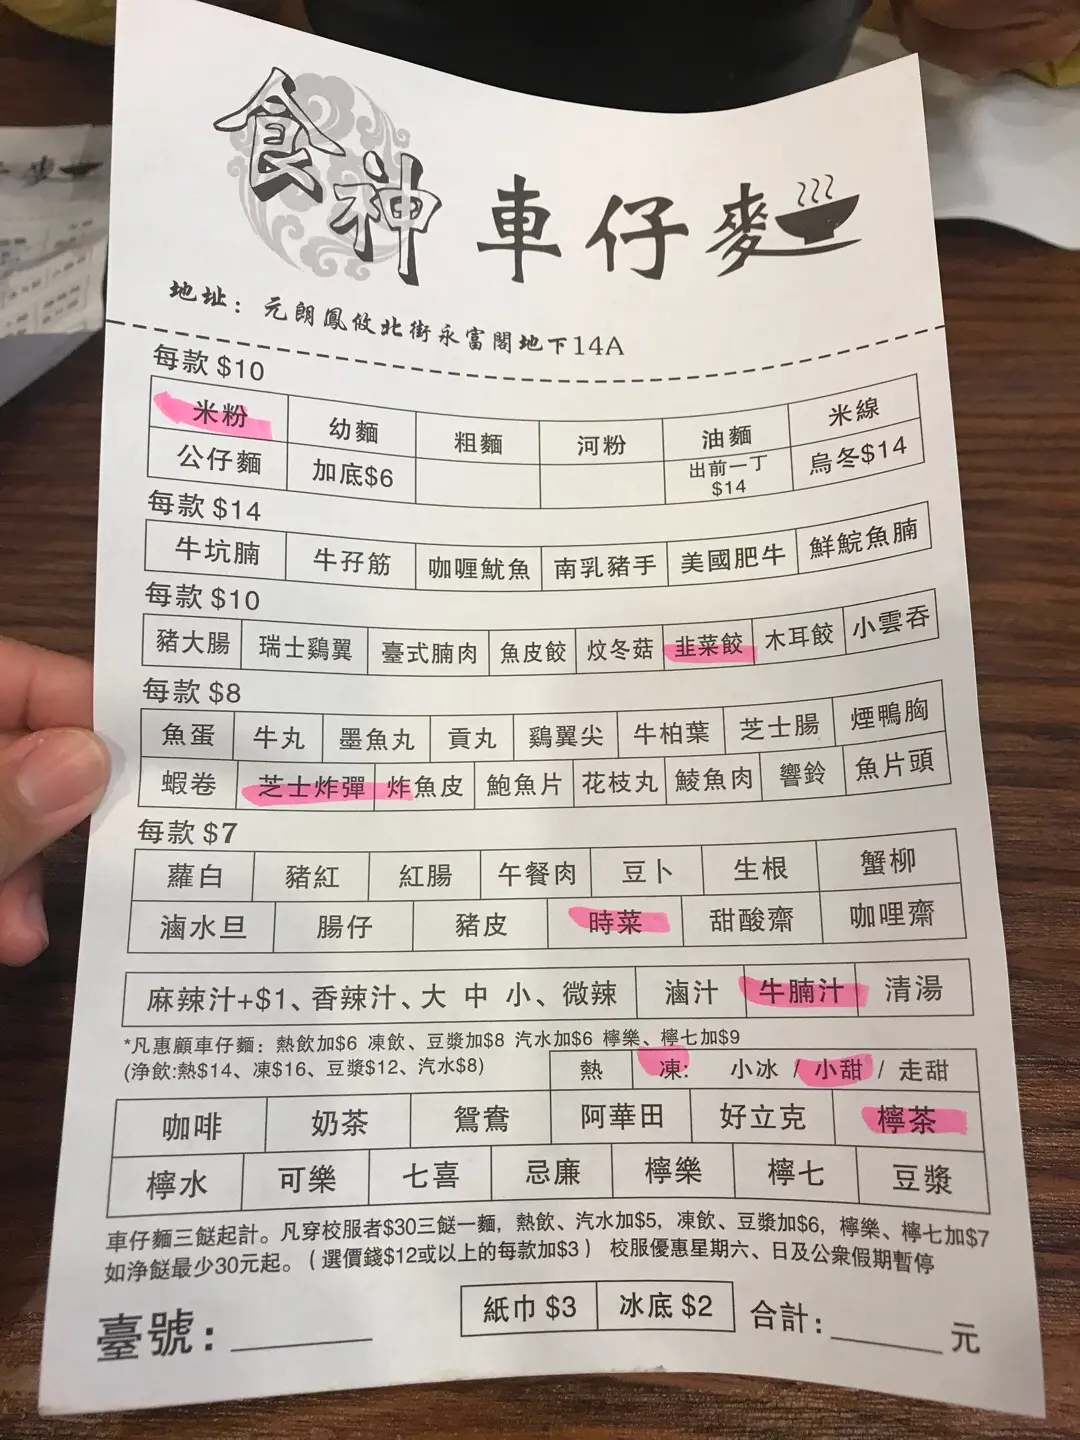 食神 車仔麵
地址：元朗鳳攸北街永富閣地下14A
每款 $10
米粉 幼麵 粗麵 河粉 油麵 米線
公仔麵 加底$6 出前一丁 $14 烏冬$14
每款 $14
牛坑腩 牛孖筋 咖喱魷魚 南乳豬手 美國肥牛 鮮鯇魚腩
每款 $10
豬大腸 瑞士鷄翼 臺式腩肉 魚皮餃 炆冬菇 韭菜餃 木耳餃 小雲吞
每款 $8
魚蛋 牛丸 墨魚丸 貢丸 鷄翼尖 牛柏葉 芝士腸 煙鴨胸
蝦卷 芝士炸彈 炸魚皮 鮑魚片 花枝丸 鯪魚肉 響鈴 魚片頭
每款 $7
蘿白 豬紅 紅腸 午餐肉 豆卜 生根 蟹柳
滷水旦 腸仔 豬皮 時菜 甜酸齋 咖哩齋
麻辣汁+$1、香辣汁、大 中 小、微辣 滷汁 牛腩汁 清湯
*凡惠顧車仔麵：熱飲加$6 凍飲、豆漿加$8 汽水加$6 檸樂、檸七加$9
(净飲:熱$14、凍$16、豆漿$12、汽水$8) 熱 凍: 小冰 / 小甜 / 走甜
咖啡 奶茶 鴛鴦 阿華田 好立克 檸茶
檸水 可樂 七喜 忌廉 檸樂 檸七 豆漿
車仔麵三餸起計。凡穿校服者$30三餸一麵，熱飲、汽水加$5，凍飲、豆漿加$6，檸樂、檸七加$7
如净餸最少30元起。（選價錢$12或以上的每款加$3） 校服優惠星期六、日及公衆假期暫停
臺號：＿＿＿ 紙巾 $3 冰底 $2 合計：＿＿＿元